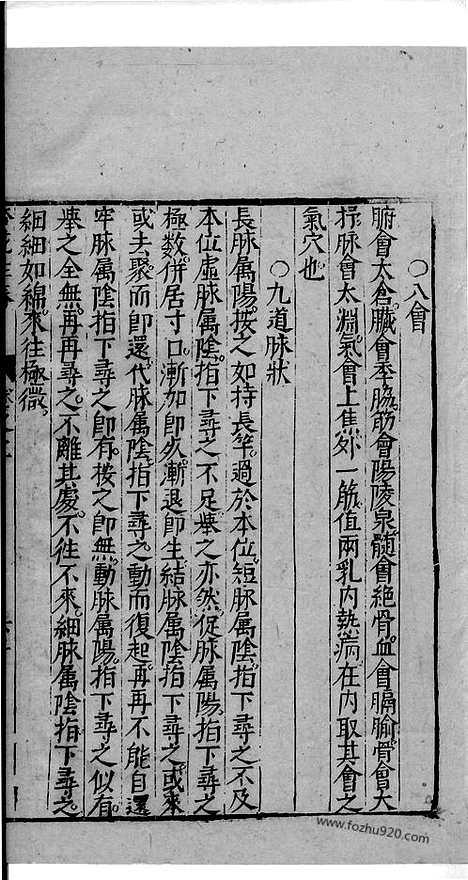 ○八會
腑會太倉。臟會季脇。筋會陽陵泉。髓會絕骨。血會膈腧。骨會大
抒。脉會太淵。氣會上焦外一筋值兩乳内。熱病在内取其會之
氣穴也。
○九道脉狀
長脉属陽。按之如持長竿。過於本位。短脉属陰。指下尋之不及
本位。虛脉属陰。指下尋之不足。舉之亦然。促脉属陽。指下尋之
極数。併居寸口。漸加即死。漸退即生。結脉属陰。指下尋之。或來
或去。聚而即還。代脉属陰。指下尋之。動而復起。再再不能自還。
牢脉属陰。指下尋之即有。按之即無。動脉属陽。指下尋之似有。
舉之全無。再再尋之。不離其處。不往不來。細脉属陰。指下尋之。
細細如綿。來往極微。
www.fozhu920.com